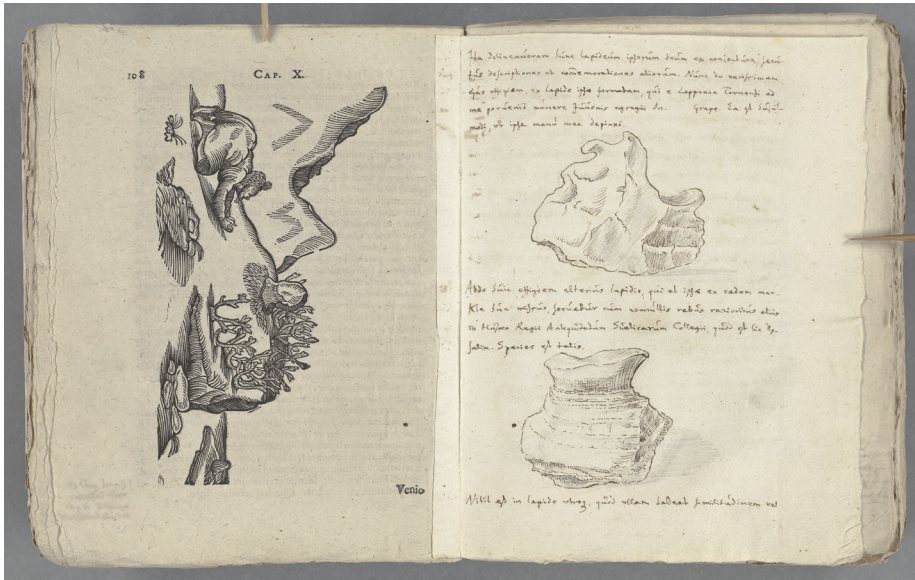 108
CAP. X.
Venio
Ita delineaveram hunc lapideum ipsorum deum ex conjectura, secu-
tus descriptiones et commemorationes aliorum. Nunc do verissimam
ejus effigiem, ex lapide ipso formatam, qui e Lapponia Tornensi ad
me pervenit munere Juvenis egregii Dn. Grape. Ea est hujus-
modi, ut ipse manu mea depinxi.
Addo huic effigiem alterius lapidis, qui et ipse ex eadem mar-
kia huc missus, servatur cum nonnullis rebus rarioribus aliis
in Museo Regii Antiquitatum Sueticarum Collegii, quod est hic Up-
saliæ. Species est talis.
Nihil est in lapide utroq, quod ullam habeat similitudinem vel